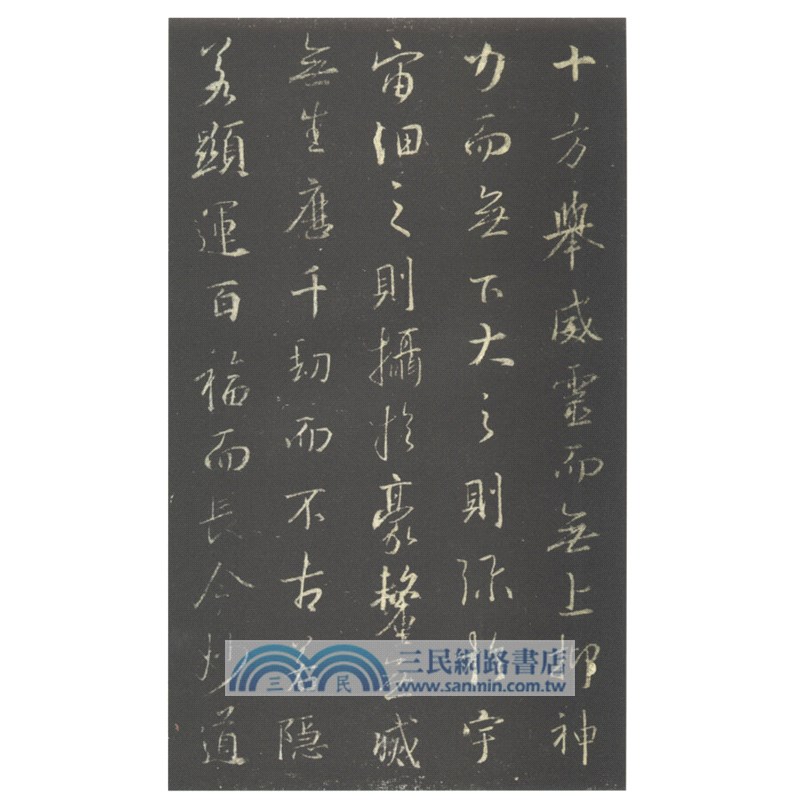 十方舉威靈而無上抑神
力而無下大之則弥於宇
宙細之則攝於豪釐無滅
無生歷千劫而不古若隱
若顯運百福而長今妙道
三民網路書店
三民
www.sanmin.com.tw